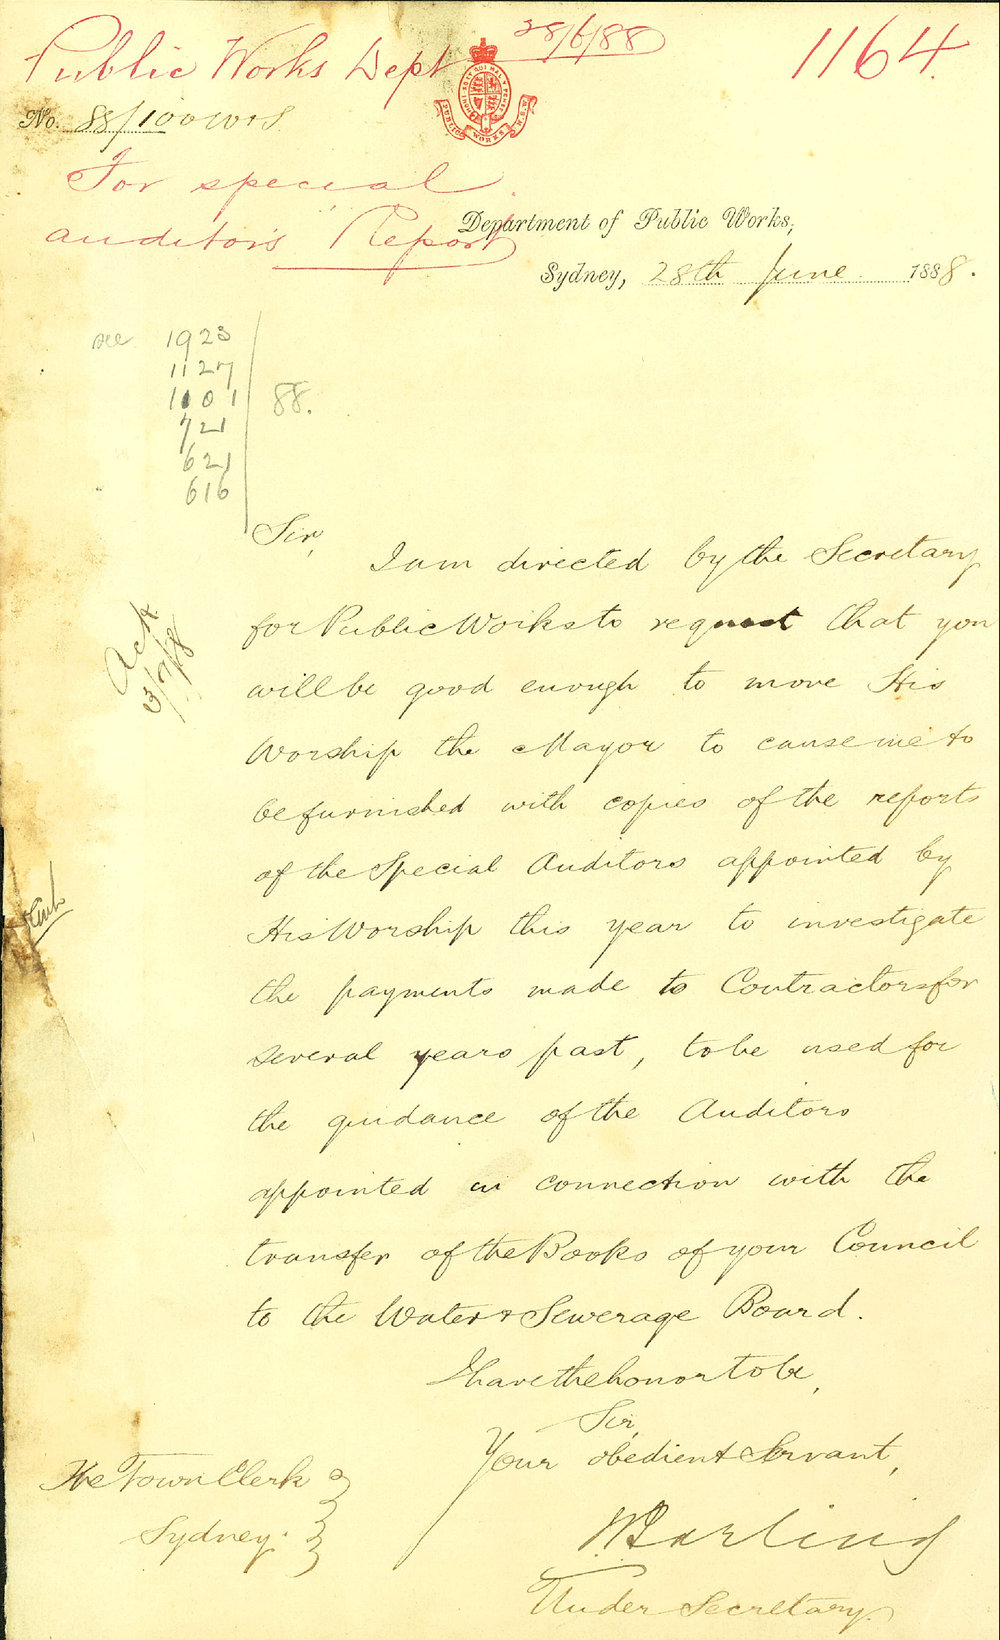 Public Works Dept 28/6/88
1164.
No. 88/100 W&S
HONI SOIT QUI MAL Y PENSE
PUBLIC WORKS N.S.W.
For special
auditor's Report
Department of Public Works,
Sydney, 28th June 1888.
see 1923
1127
1101 88.
721
621
616
Sir,
I am directed by the Secretary
for Public Works to request that you
will be good enough to move His
Worship the Mayor to cause me to
be furnished with copies of the reports
of the Special Auditors appointed by
His Worship this year to investigate
the payments made to Contractors for
several years past, to be used for
the guidance of the Auditors
appointed in connection with the
transfer of the Books of your Council
to the Water & Sewerage Board.
Ack
3/7/88
I have the honor to be,
Sir,
Your obedient Servant,
The Town Clerk
Sydney.
Under Secretary.